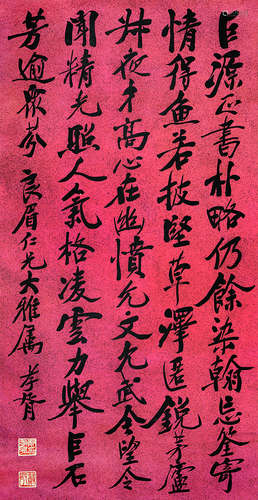 巨源正書朴略仍餘染翰忘筌寄
情得魚若披堅草澤匿銳茅廬
叔夜才高心在幽憤允文允武令望令
聞精光照人氣格凌雲力舉巨石
芳逾眾芬 良眉仁兄大雅屬 孝胥